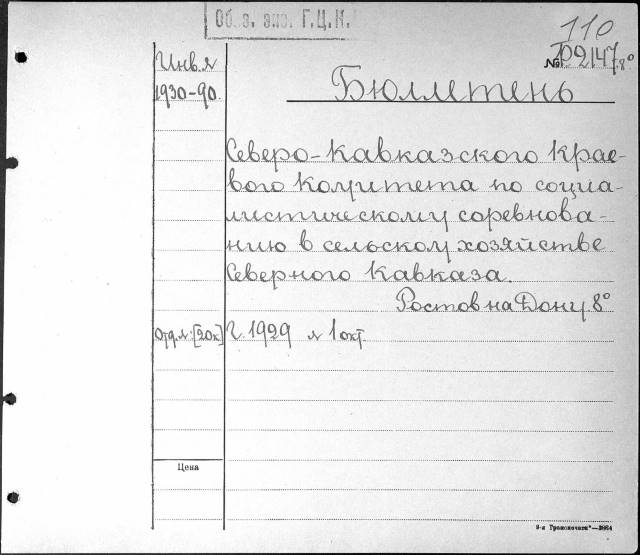 Об. э. экз. Г.Ц.К.
110
№ 102147 8°
Инв. №
1930-90.
Бюллетень
Северо-Кавказского Крае-
вого Комитета по социа-
листическому соревнова-
нию в сельском хозяйстве
Северного Кавказа.
Ростов на Дону 8°
Отд. №: [20к] Г. 1929 № 1 окт.
Цена